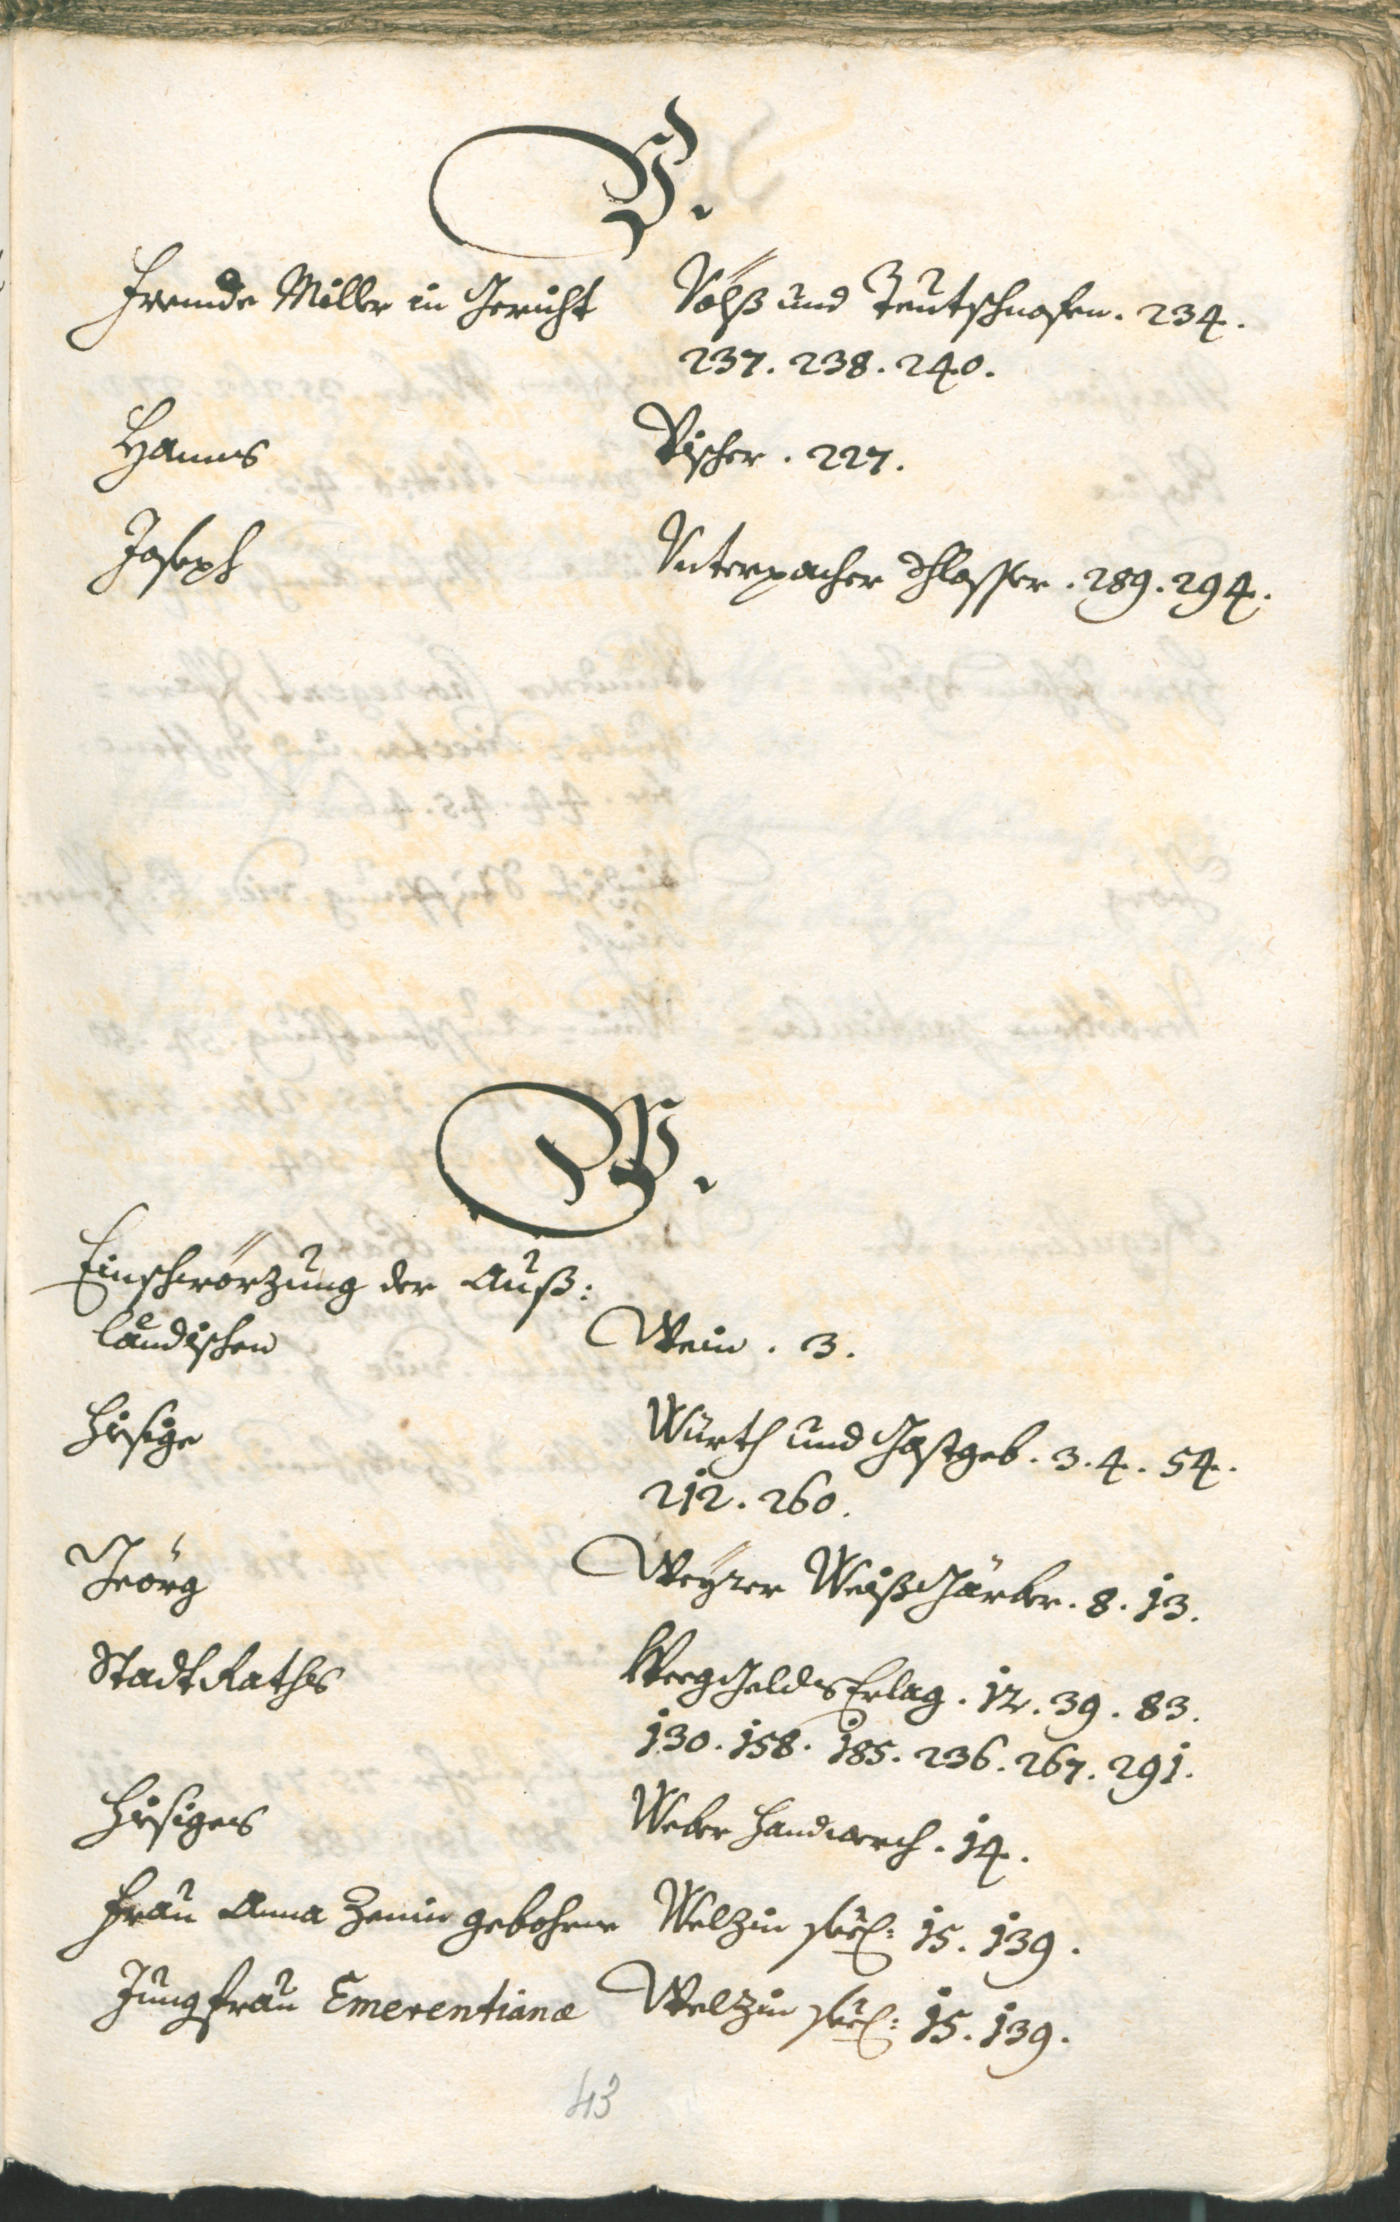 V.
Fremde Miller in Gericht Völß und Teutschnofen. 234.
237. 238. 240.
Hanns Vischer. 227.
Joseph Unterpacher Schlosser. 289. 294.
W.
Einschwörzung der Auß:
ländischen Wein. 3.
Hiesige Würth und Gastgeb. 3. 4. 54.
212. 260.
Geörg Weyrer Weißgärber. 8. 13.
Stadt Raths Weeg Gelds Erlag. 12. 39. 83.
130. 158. 185. 236. 267. 291.
Hiesiges Weber Handwerch. 14.
Frau Anna Zenin gebohrne Welzin 15. 139.
Jungfrau Emerentiana Welzin 15. 139.
43